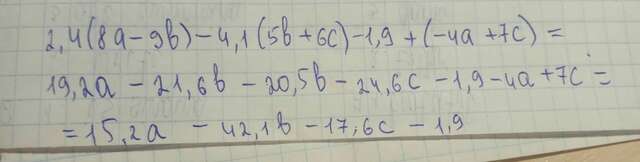 2,4(8a-9b)-4,1(5b+6c)-1,9+(-4a+7c)=
19,2a-21,6b-20,5b-24,6c-1,9-4a+7c=
=15,2a-42,1b-17,6c-1,9